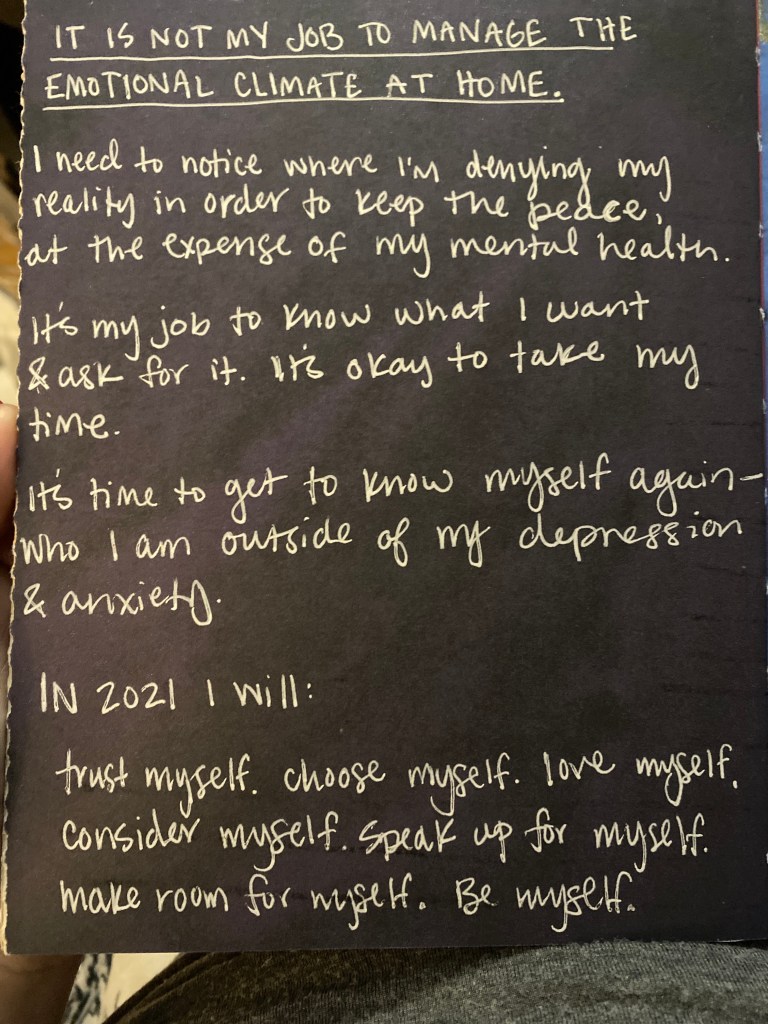 IT IS NOT MY JOB TO MANAGE THE
EMOTIONAL CLIMATE AT HOME.
I need to notice where I'm denying my
reality in order to keep the peace,
at the expense of my mental health.
It's my job to know what I want
& ask for it. It's okay to take my
time.
It's time to get to know myself again—
who I am outside of my depression
& anxiety.
IN 2021 I will:
trust myself. choose myself. love myself.
consider myself. speak up for myself.
make room for myself. Be myself.